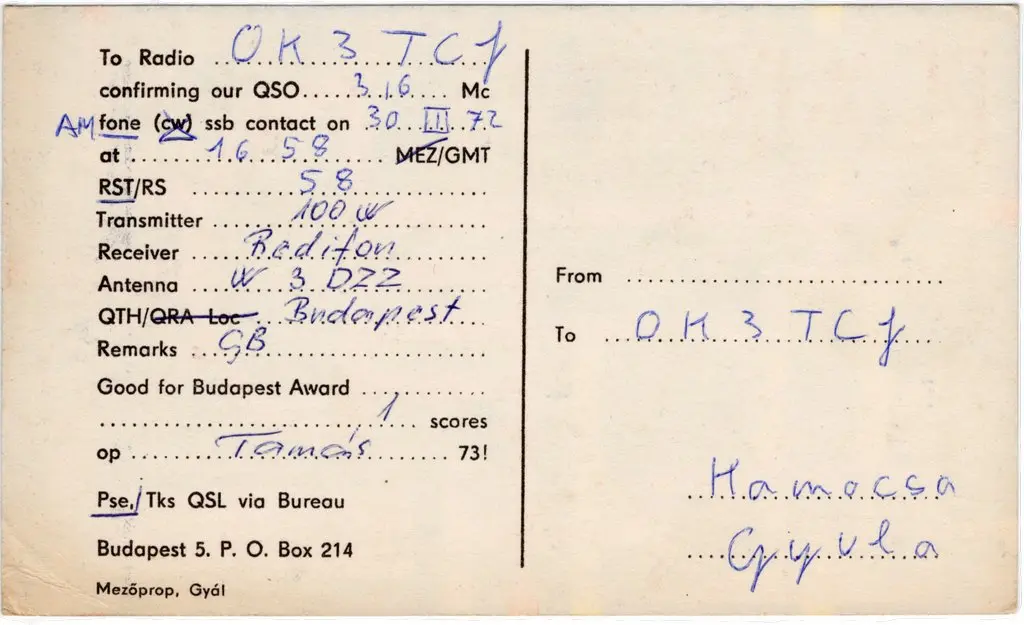 To Radio OK3TCJ
confirming our QSO 3,6 Mc
AM fone (cw) ssb contact on 30 III 72
at 16 58 MEZ/GMT
RST/RS 58
Transmitter 100 W
Receiver Redifon
Antenna W 3 DZZ
QTH/QRA Loc Budapest
Remarks GB
Good for Budapest Award
1 scores
op Tamás 73!
Pse,/Tks QSL via Bureau
Budapest 5. P. O. Box 214
Mezőprop, Gyál
From
To OK3TCJ
Hamocsa
Gyula